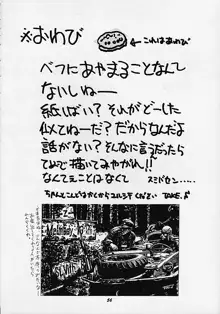 ※おわび
←これはあわび
べつにあやまることなんて
ないしねー
紙しばい？それがどーした
似てねーだ？だからなんだよ
話がない？そんなに言うだったら
てめーで描いてみやがれ!!
なんてえことはなくて
スミバセン……
ちゃんとこんどはかくからユルシテください TAKE.